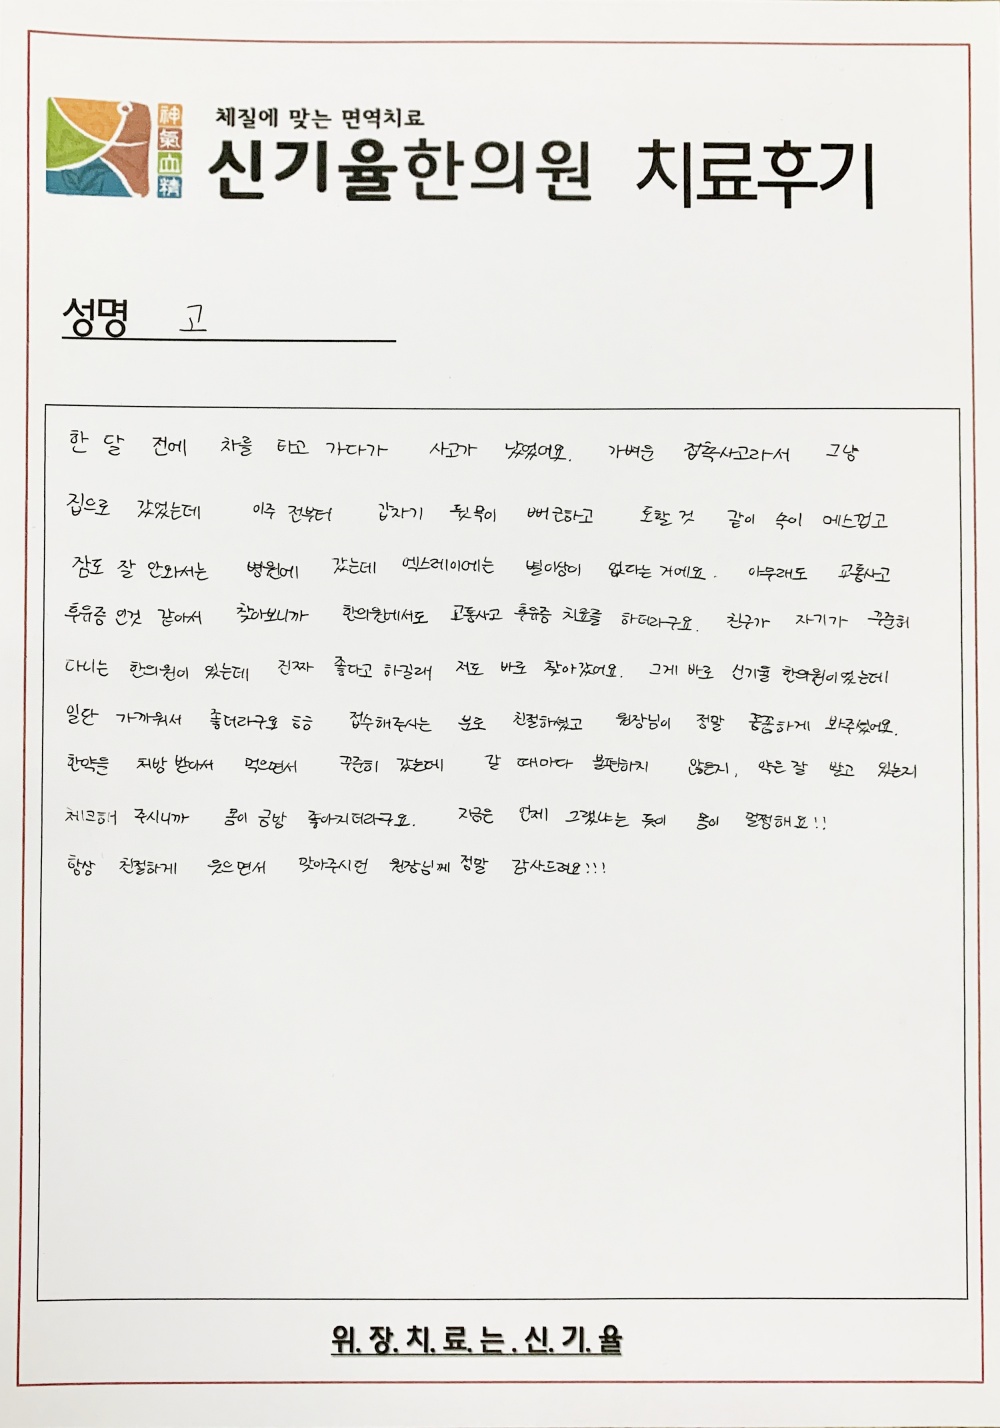 체질에 맞는 면역치료
神氣血精
신기율한의원 치료후기
성명 고
한 달 전에 차를 타고 가다가 사고가 났었어요. 가벼운 접촉사고라서 그냥
집으로 갔었는데 이주 전부터 갑자기 뒷목이 뻐근하고 토할 것 같이 속이 메스껍고
잠도 잘 안와서는 병원에 갔는데 엑스레이에는 별이상이 없다는 거에요. 아무래도 교통사고
후유증 인것 같아서 찾아보니까 한의원에서도 교통사고 후유증 치료를 하더라구요. 친구가 자기가 꾸준히
다니는 한의원이 있는데 진짜 좋다고 하길래 저도 바로 찾아갔어요. 그게 바로 신기율 한의원이였는데
일단 가까워서 좋더라구요 ㅎㅎ 접수해주시는 분도 친절하셨고 원장님이 정말 꼼꼼하게 봐주셨어요.
한약을 처방 받아서 먹으면서 꾸준히 갔는데 갈 때마다 불편하지 않은지, 약은 잘 받고 있는지
체크해 주시니까 몸이 금방 좋아지더라구요. 지금은 언제 그랬냐는 듯이 몸이 멀쩡해요!!
항상 친절하게 웃으면서 맞아주시던 원장님께 정말 감사드려요!!!
위.장.치.료.는.신.기.율